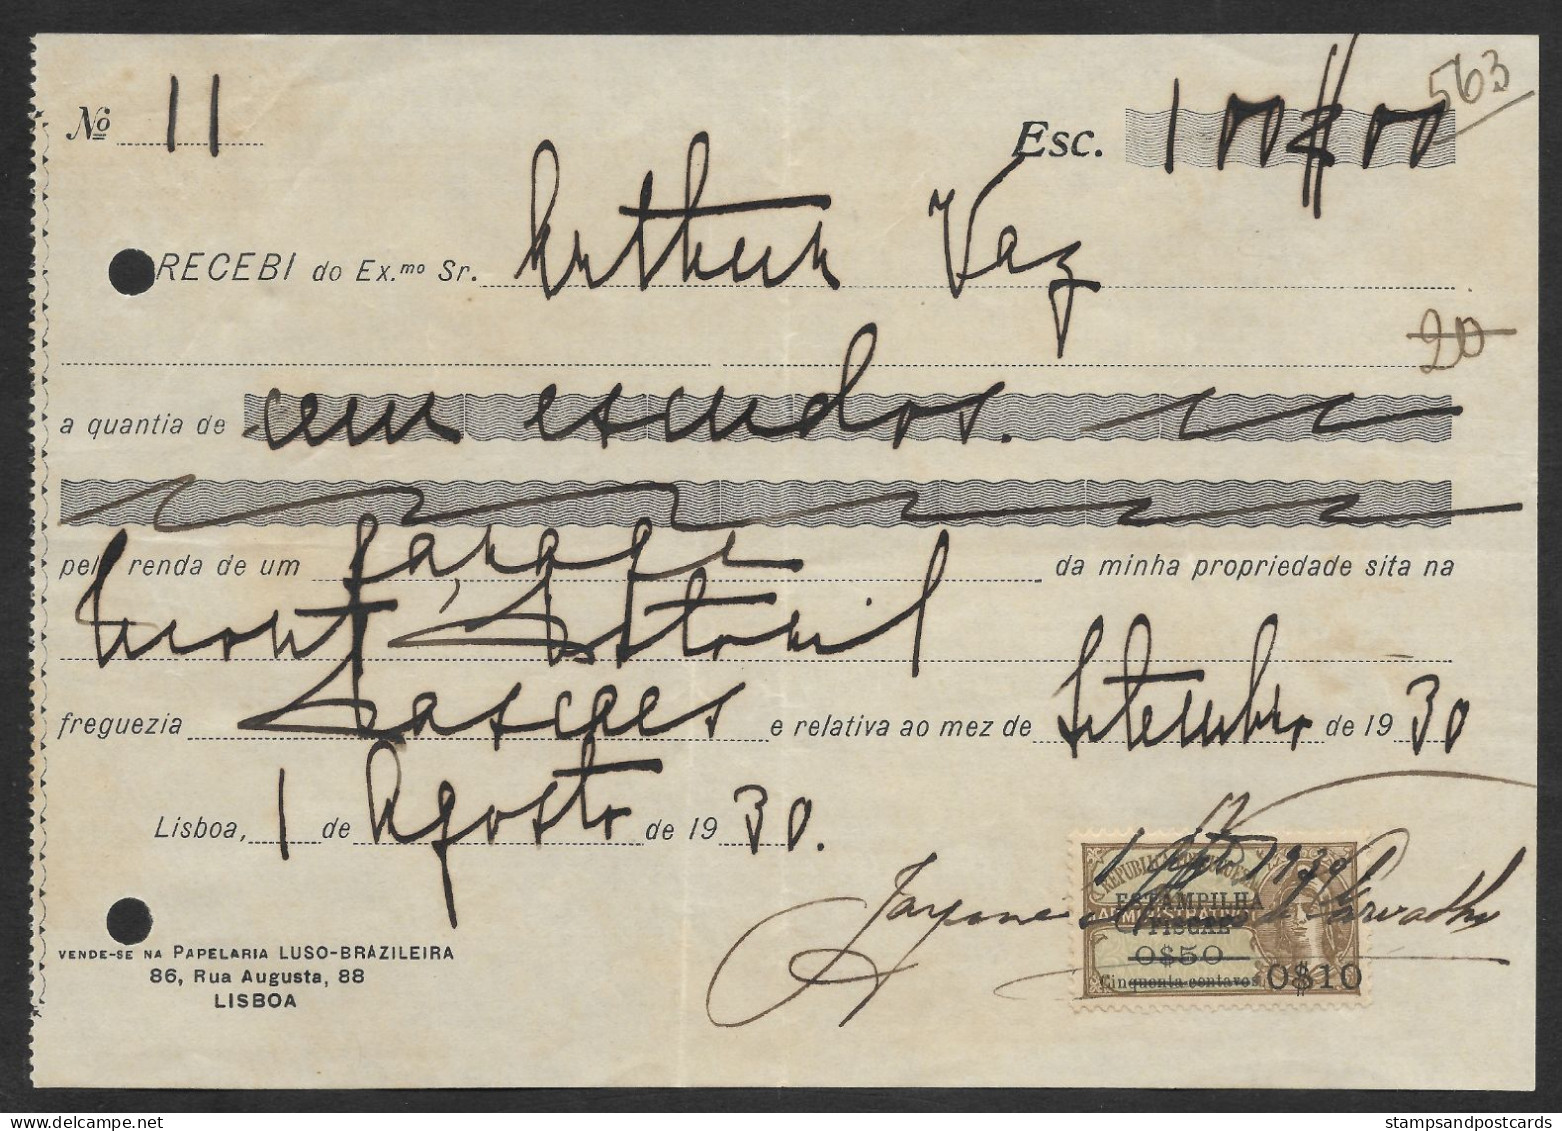 563
Nº 11 Esc. 100$00
RECEBI do Ex.mo Sr. Arthur Vaz
20
a quantia de cem escudos.
pela renda de um garage da minha propriedade sita na
Mont'Estoril
freguezia Cascaes e relativa ao mez de Setembro de 1930
Lisboa, 1 de Agosto de 1930.
1 Agto 1930
REPUBLICA PORTUGUESA
ESTAMPILHA
FISCAL
0$50
Cinquenta centavos 0$10
de Carvalho
VENDE-SE NA PAPELARIA LUSO-BRAZILEIRA
86, Rua Augusta, 88
LISBOA
stampsandpostcards